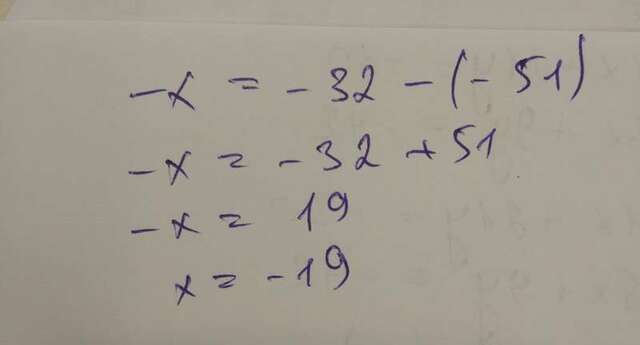 -x = -32 - (-51)
-x = -32 + 51
-x = 19
x = -19